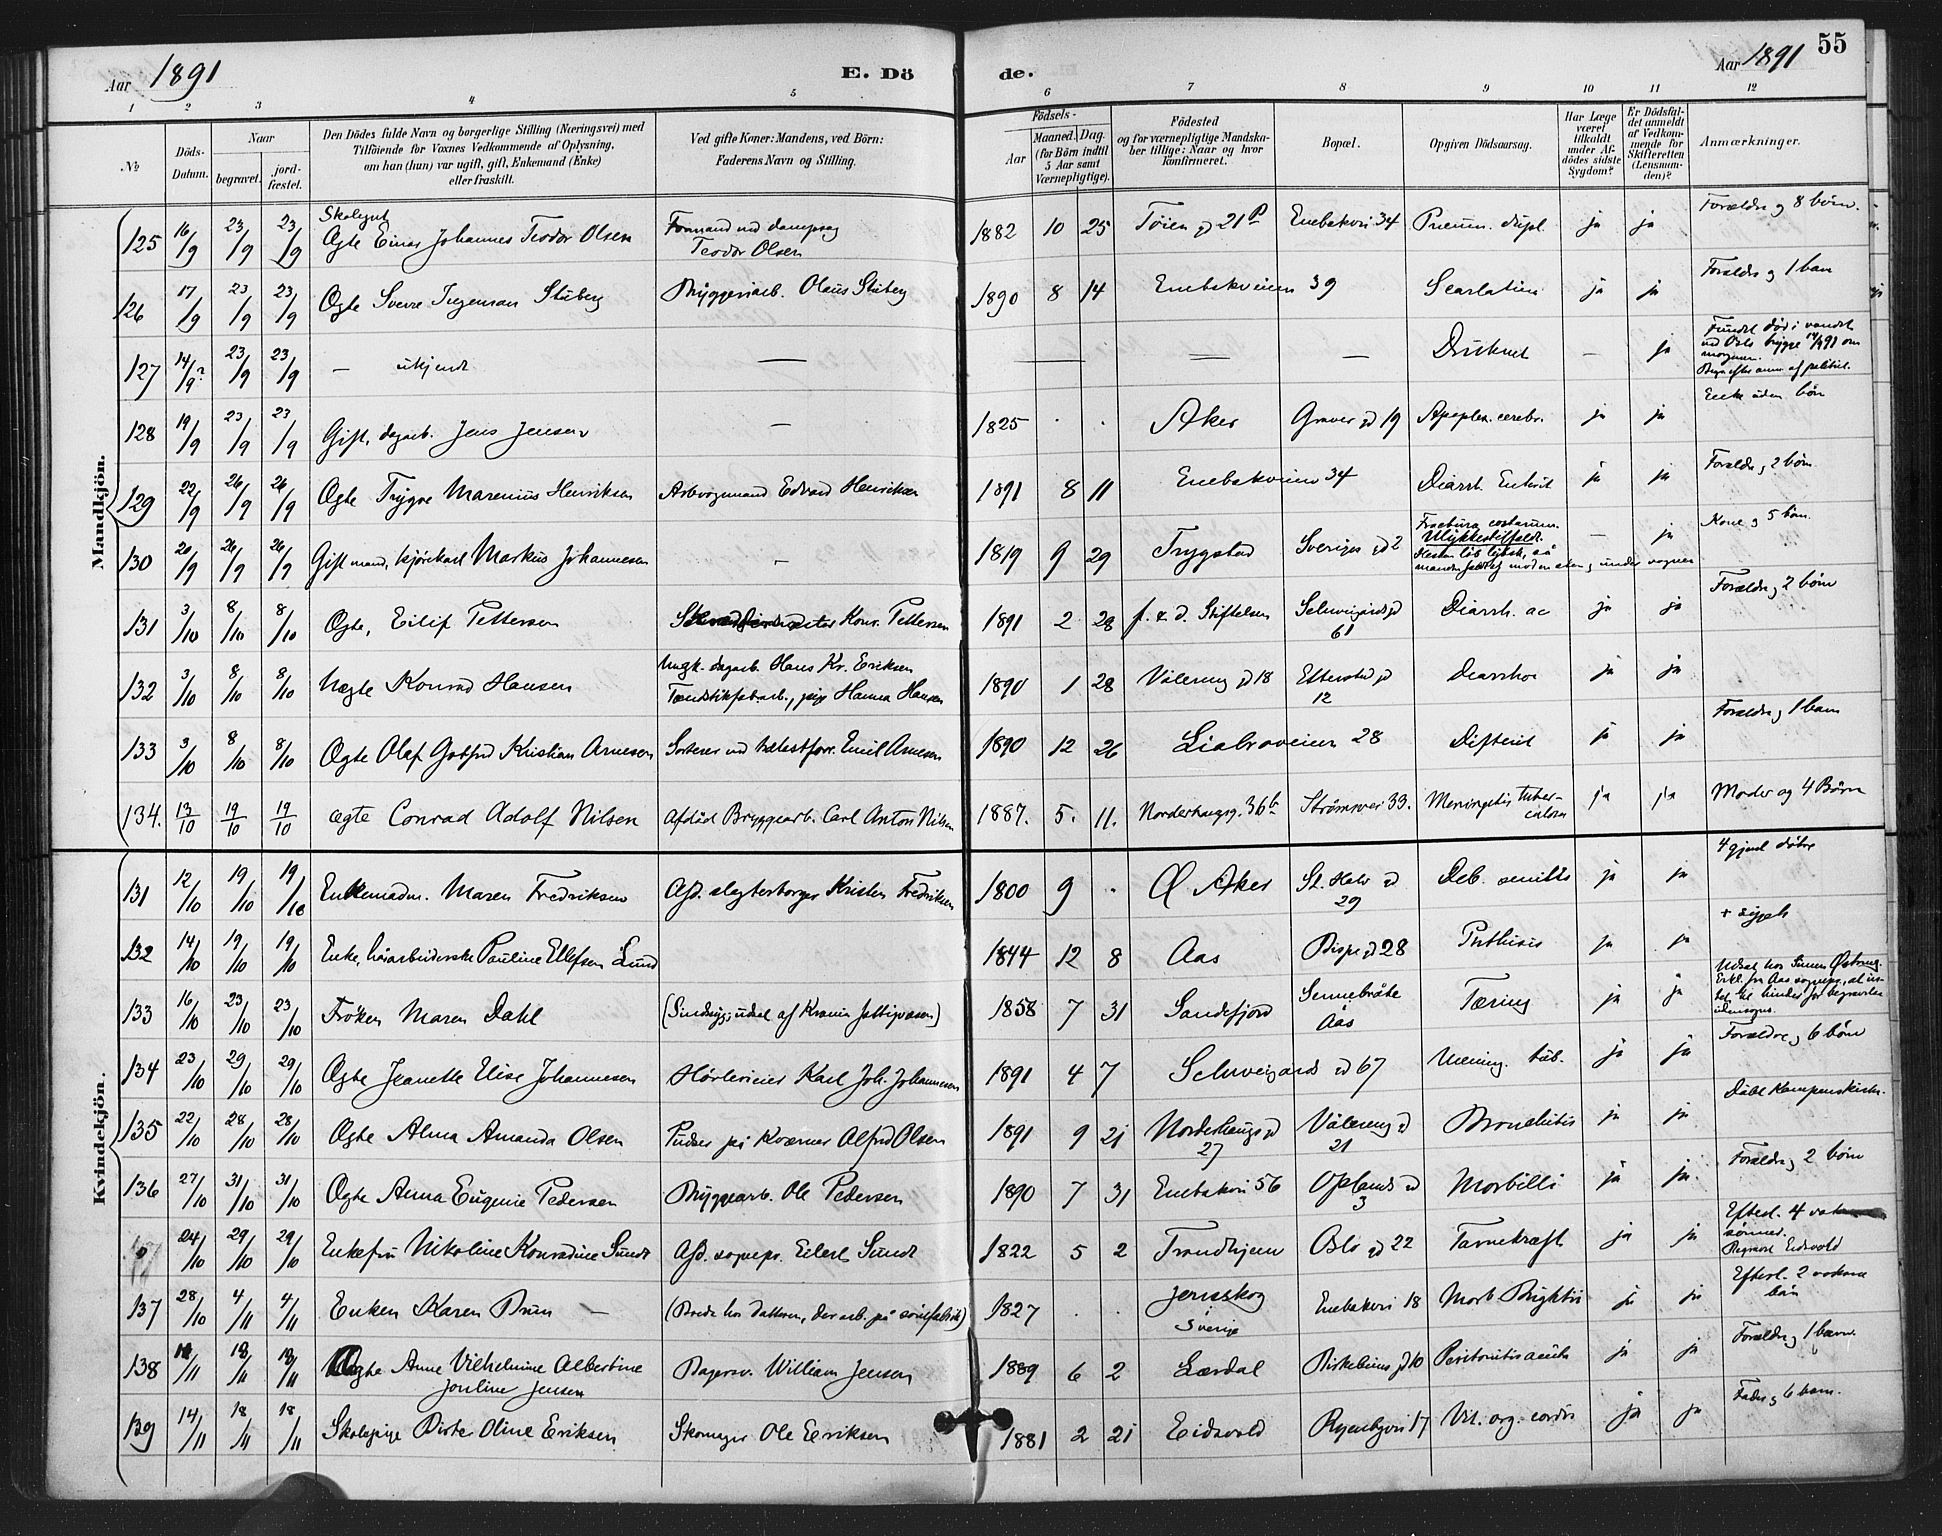 Aar 1891 E. Döde. Aar 1891 55
1 2 3 4 5 6 7 8 9 10 11 12
№
Döds-Datum.
Naar
begravet.
jord-fæstet.
Den Dödes fulde Navn og borgerlige Stilling (Næringsvei) med
Tilföiende for Voxnes Vedkommende af Oplysning,
om han (hun) var ugift, gift, Enkemand (Enke)
eller fraskilt.
Ved gifte Koner: Mandens, ved Börn:
Faderens Navn og Stilling.
Födsels-
Aar
Maaned. Dag.
(for Börn indtil
5 Aar samt
Værnepligtige).
Födested
og for værnepligtige Mandska-
ber tillige: Naar og hvor
konfirmeret.
Bopæl.
Opgiven Dödsaarsag.
Har Læge
været
tilkaldt
under Af-
dödes sidste
Sygdom?
Er Dödsfal-
det anmeldt
af Vedkom-
mende for
Skifteretten
(Lensman-
den)?
Anmærkninger.
Mandkjön.
125 16/9 23/9 23/9 Skolegut Ægte Einar Johannes Teodor Olsen Formand ved dampsag Teodor Olsen 1882 10 25 Töien gd 21 Enebakvei 34 Pneum. dupl. ja ja Forældre og 8 börn.
126 17/9 23/9 23/9 Ægte Sverre Ingeman Stuberg Bryggeriarb. Olaus Stuberg 1890 8 14 Enebakveien 39 Scarlatina ja ja Forældre og 1 barn
127 14/9? 23/9 23/9 — ukjendt — — — — Druknet — ja Fundet död i vandet ved Oslo brygge 14/9 91 om morgenen.
128 19/9 23/9 23/9 Gift, dagarb. Jens Jensen — 1825 . . Aker Gröver gd 19 Apoplex. cerebr. ja ja Enke uden börn
129 22/9 26/9 26/9 Ægte Trygve Marenius Henriksen Arbvogmand Edvard Henriksen 1891 8 11 Enebakveien 34 Diarrh. Enterit ja ja Forældre og 2 börn
130 20/9 26/9 26/9 Gift mand, kjörekarl Markus Johannesen — 1819 9 29 Trygstad Sveriges gd 2 Fractura costarum. Ulykkestilfælde. — ja Kone og 5 börn.
131 3/10 8/10 8/10 Ægte, Eilif Pettersen Konr. Pettersen 1891 2 28 f. & d. Stiftelsen Schweigårds gd 61 Diarrh. ac ja ja Forældre og 2 börn
132 3/10 8/10 8/10 Uægte Konrad Hansen Ungk. dagarb. Hans Kr. Eriksen Tændstikfabarb., pige Hanna Hansen 1890 1 28 Vålereng gd 18 Etterstad gd 12 Diarrhoe ja ja
133 3/10 8/10 8/10 Ægte Olaf Gotfred Kristian Arnesen Emil Arnesen 1890 12 26 Liabroveien 28 Difterit ja ja Forældre og 1 barn
134. 13/10 19/10 19/10 ægte Conrad Adolf Nilsen Afdöd Bryggearb. Carl Anton Nilsen 1887. 5. 11. Norderhaugsg. 36b Strömsvei 33. Meningitis tuberculosa ja ja Moder og 4 Börn
Kvindekjön.
131 12/10 19/10 19/10 Enkemadm. Maren Fredriksen Afd. slagterborger Kristen Fredriksen 1800 9 . Ø Aker St. Halv gd 29 Deb. senilis ja ja 4 gjend. döbte
132 14/10 19/10 19/10 Enke, håarbeiderske Pauline Ellefsen Lund 1844 12 8 Aas Bispe gd 28 Phthisis ja ja
133 16/10 23/10 23/10 Fröken Maren Dahl 1858 7 31 Sandefjord Sennebråte Åas Tæring ja ja
134 23/10 29/10 29/10 Ægte Jeanette Elise Johannesen Karl Joh. Johannesen 1891 4 7 Schweigårds gd 67 Mening. tub. ja ja Forældre og 6 börn
135 22/10 28/10 28/10 Ægte Alma Amanda Olsen Pudser på Kværner Alfred Olsen 1891 9 21 Norderhaugs gd 27 Vålereng gd 21 Bronchitis ja ja Döbt Kampenskirke.
136 27/10 31/10 31/10 Ægte Anna Eugenie Pedersen Bryggearb. Ole Pedersen 1890 7 31 Enebakvei 56 Oplands gd 3 Morbilli ja ja. Forældre og 2 börn
24/10 29/10 29/10 Enkefru Nikoline Konradine Sundt Afd. sognepr. Eilert Sundt 1822 5 2 Trondhjem Oslo gd 22 Tarmekræft ja ja Efterl. 4 sönner. Eidsvold
137 28/10 4/11 4/11 Enken Karen Brun — 1827 . . Jernskog Sverige Enebakvei 18 Morb. Brightii ja ja Efterl. 2 voksne börn
138 11/11 18/11 18/11 Ægte Anne Vilhelmine Albertine Jouline Jensen Bagersv. William Jensen 1889 6 2 Lærdal Birkelunds gd 10 Peritonitis acuta ja ja Forældre og 1 barn.
139 14/11 18/11 18/11 Skolepige Birte Oline Eriksen Skomager Ole Eriksen 1881 2 21 Eidsvold Ryenbgvei 17 Vit. org. cordis ja ja Fader og 6 barn.